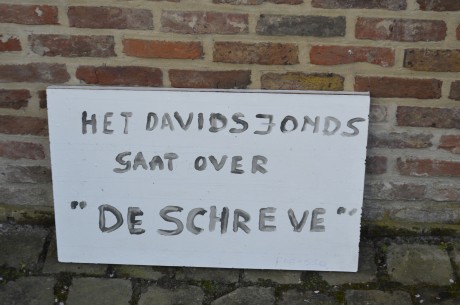 HET DAVIDSFONDS
GAAT OVER
"DE SCHREVE"